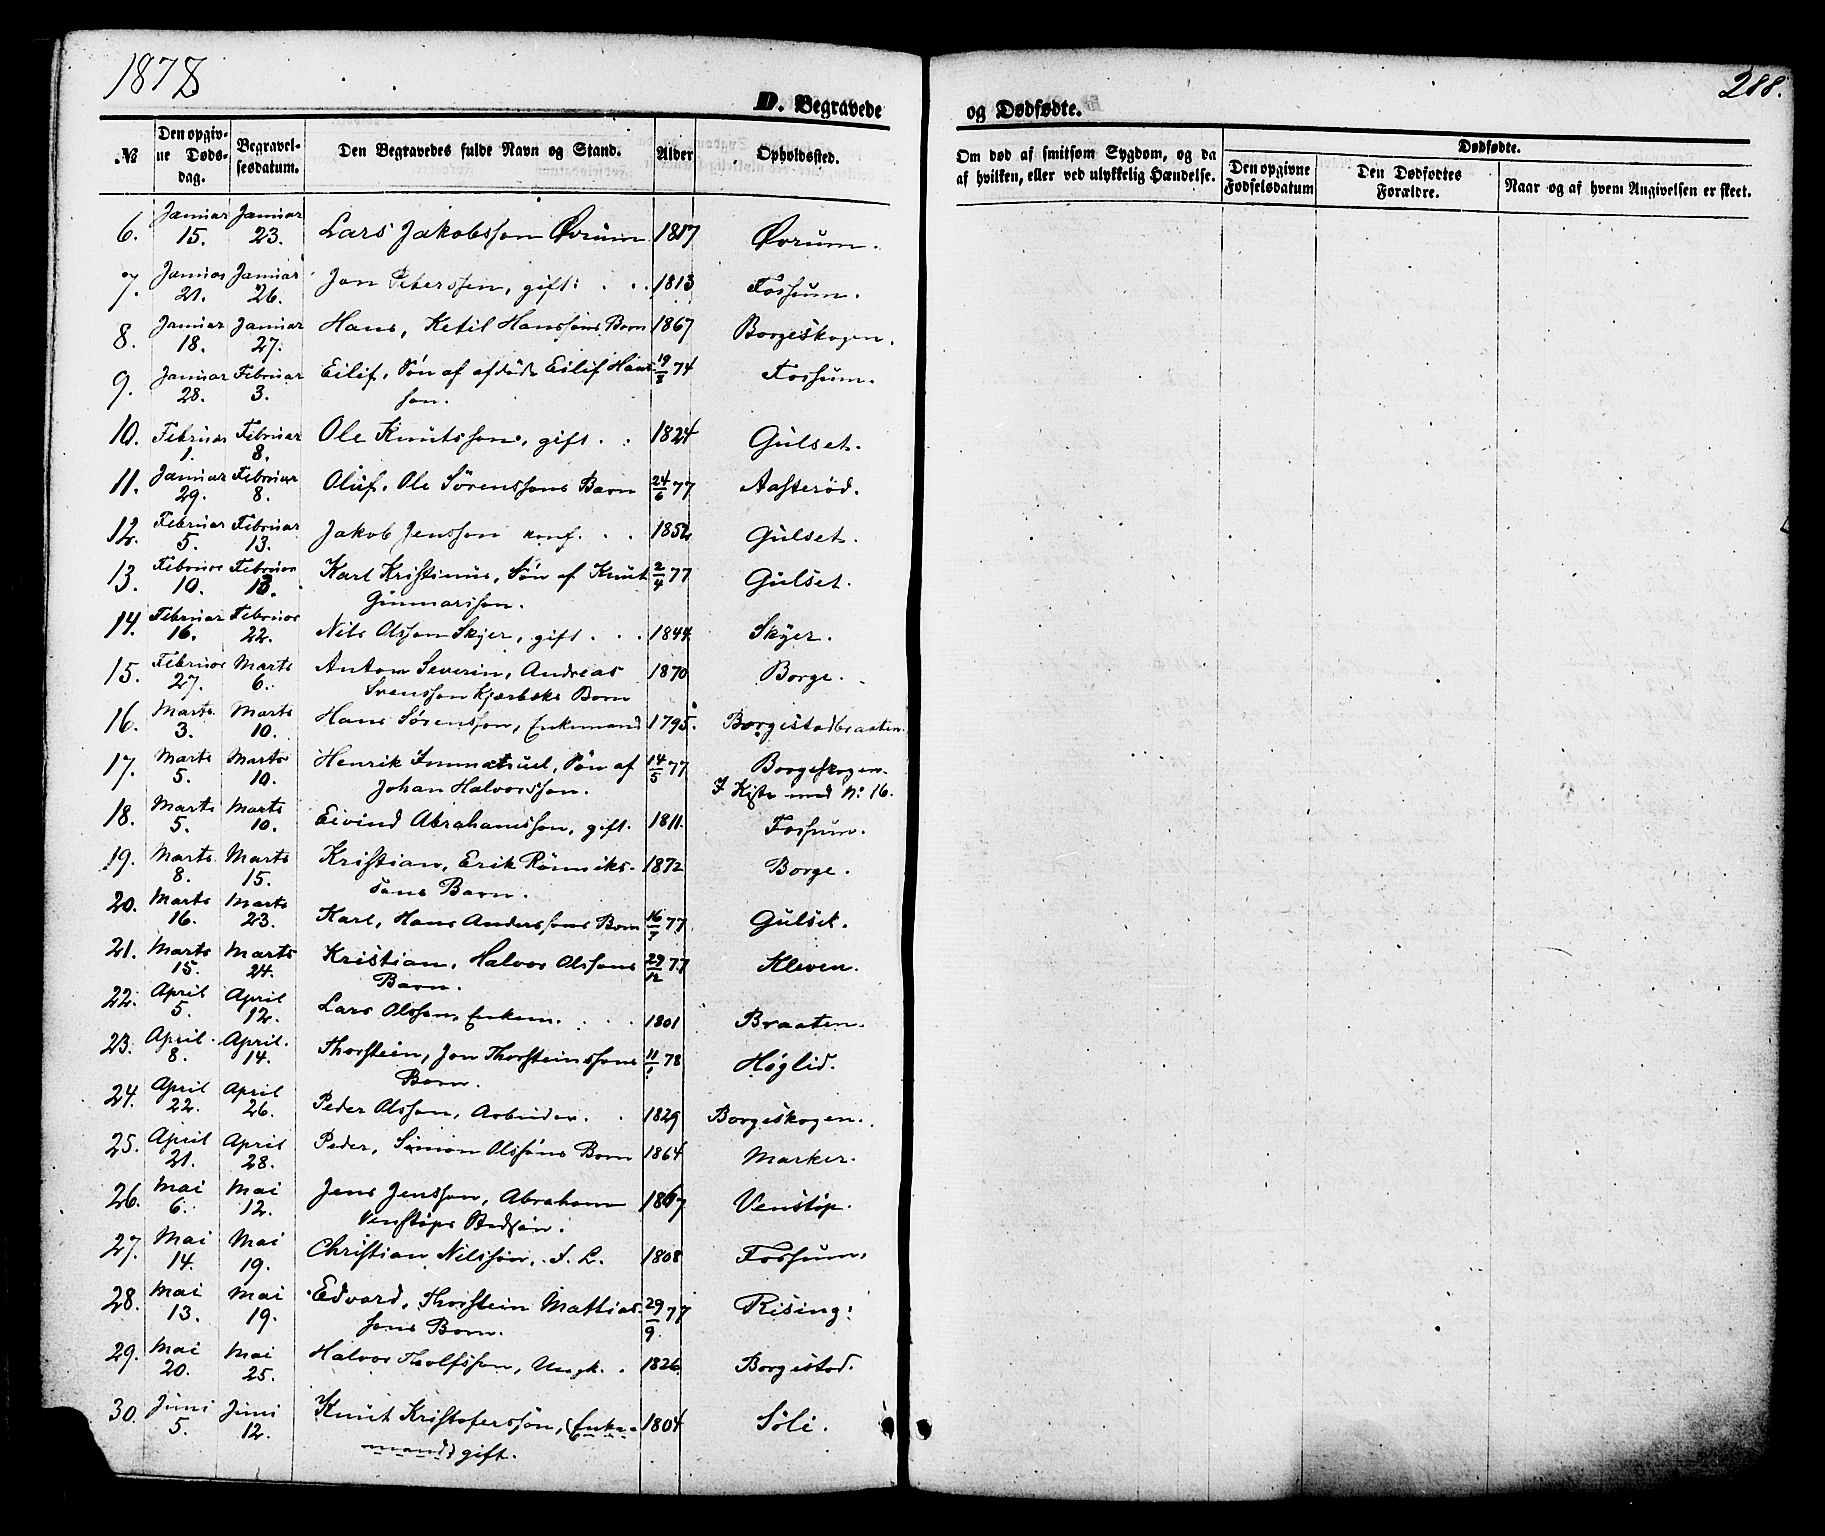 1878
288.
D. Begravede
og Dødfødte.
№ | Den opgivne Dødsdag. | Begravelsesdatum. | Den Begravedes fulde Navn og Stand. | Alder | Opholdssted. | Om død af smitsom Sygdom, og da af hvilken, eller ved ulykkelig Hændelse. | Dødfødte. | Den opgivne Fødselsdatum | Den Dødfødtes Forældre. | Naar og af hvem Angivelsen er skeet.
6. | Januar 15. | Januar 23. | Lars Jakobsson Øvrum | 1817 | Øvrum.
7. | Januar 21. | Januar 26. | Jon Peterssen, gift: | 1813 | Fossum.
8. | Januar 18. | Januar 27. | Hans, Ketil Hanssøns Barn | 1867 | Borgeskogen.
9. | Januar 28. | Februar 3. | Eilif, Søn af afdøde Eilif Hans-
son. | 19/8 74 | Fossum.
10. | Februar 1. | Februar 8. | Ole Knutsson, gift. | 1824 | Gulset.
11. | Januar 29. | Februar 8. | Oluf, Ole Sørenssons Barn | 24/6 77 | Aasterød.
12. | Februar 5. | Februar 13. | Jakob Jensson konf. | 1852 | Gulset.
13. | Februar 10. | Februar 13. | Karl Kristinus, Søn af Knut
Gunnarsson. | 2/4 77 | Gulset.
14. | Februar 16. | Februar 22. | Nils Olsson Skyer, gift | 1844. | Skyer.
15. | Februar 27. | Marts 6. | Anton Severin, Andreas
Svensson Kjærbeks Barn | 1870 | Borge.
16. | Marts 3. | Marts 10. | Hans Sørensson, Enkemand | 1795. | Borgestadbraaten.
17. | Marts 5. | Marts 10. | Henrik Immanuel, Søn af
Johan Halvorsson. | 14/5 77 | Borgeskogen.
I Kiste med No 16.
18. | Marts 5. | Marts 10. | Eivind Abrahamsson, gift. | 1811. | Fossum.
19. | Marts 8. | Marts 15. | Kristian, Erik Rönniks-
sons Barn. | 1872 | Borge.
20. | Marts 16. | Marts 23. | Karl, Hans Anderssons Barn | 16/7 77 | Gulset.
21. | Marts 15. | Marts 24. | Kristian, Halvor Olssons
Barn. | 29/12 77 | Kleven.
22. | April 5. | April 12. | Lars Olsson, Enkem. | 1801 | Braaten.
23. | April 8. | April 14. | Thorstein, Jon Thorsteinssons
Barn. | 11/1 78 | Høglid.
24. | April 22. | April 26. | Peder Olsson, Arbeider. | 1829 | Borgeskogen.
25. | April 21. | April 28. | Peder, Simon Olssøns Barn | 1864 | Marker.
26. | Mai 6. | Mai 12. | Jens Jensson, Abraham
Venstøps Stedsøn. | 1867 | Venstøp.
27. | Mai 14. | Mai 19. | Christian Nilsson, F. L. | 1808 | Fossum.
28. | Mai 13. | Mai 19. | Edvard, Thorstein Mattias-
sons Barn. | 29/9 77 | Rising.
29. | Mai 20. | Mai 25. | Halvor Tholfsson, Ungk. | 1826. | Borgestad.
30. | Juni 5. | Juni 12. | Knut Kristofersson, (Enke-
mand) gift. | 1804 | Sóli.